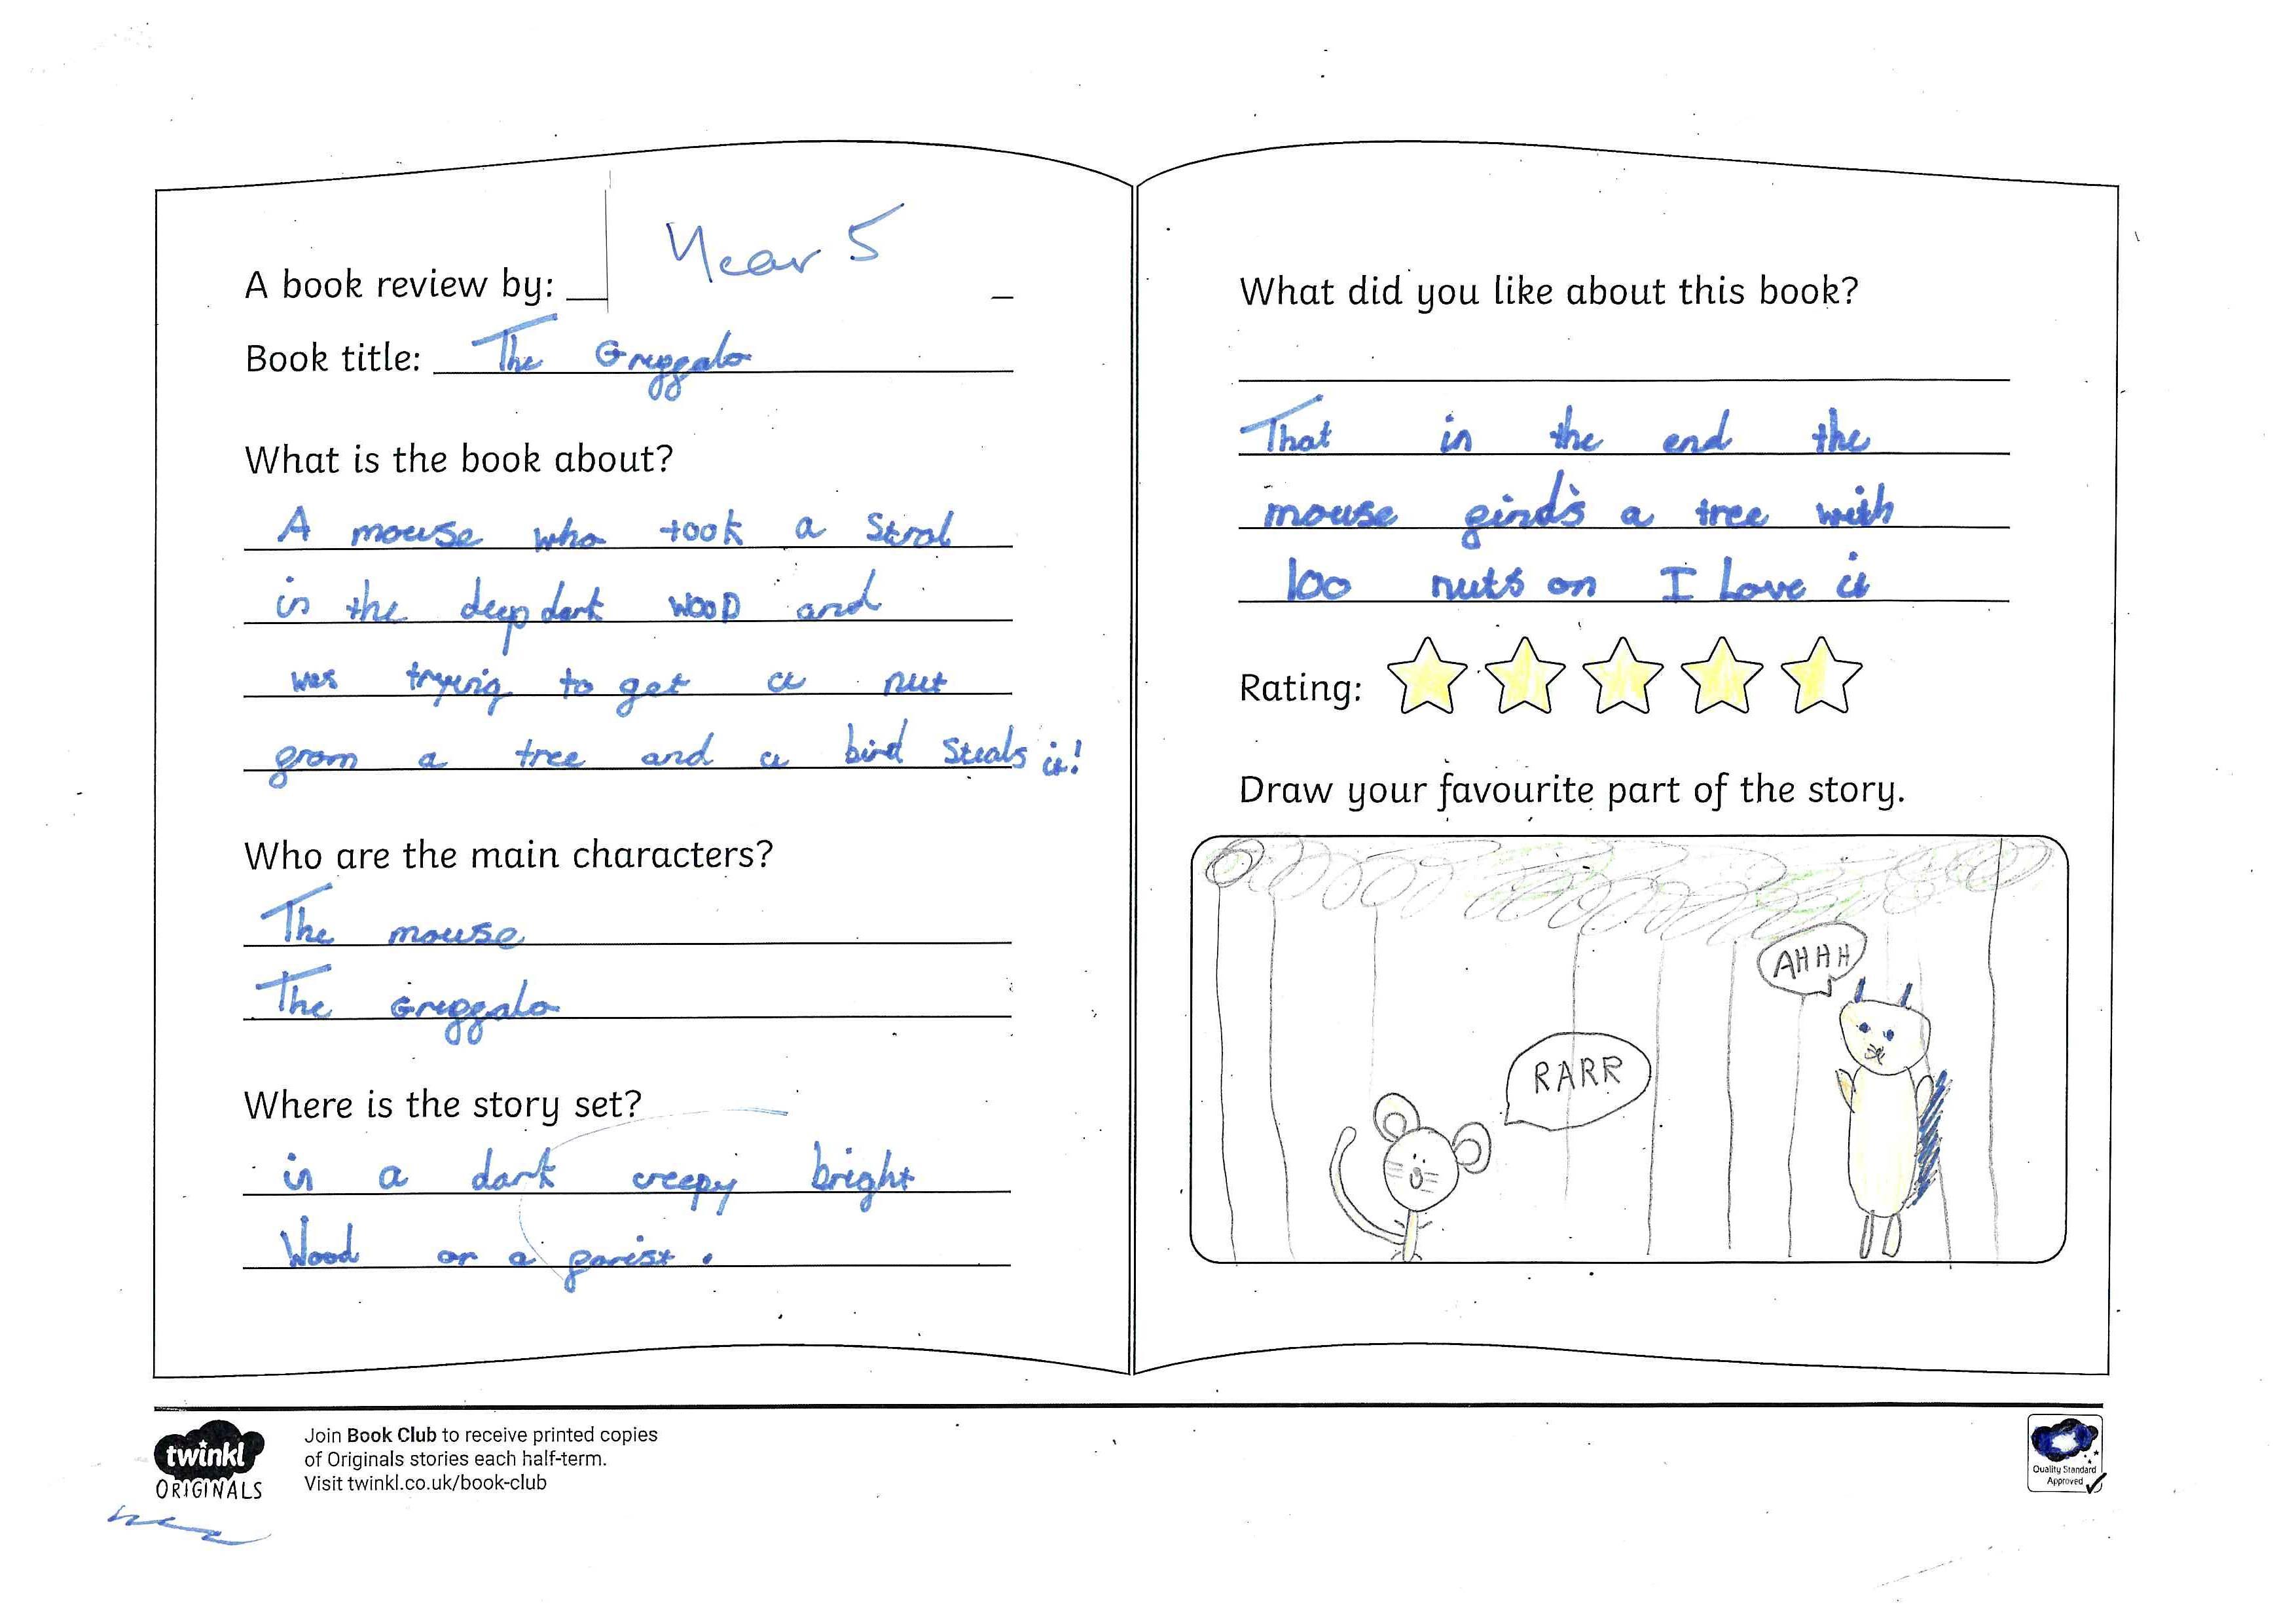 A book review by:
Year 5
Book title: The Gruffalo
What is the book about?
A mouse who took a Strol
in the deep dark wooD and
was trying to get a nut
from a tree and a bird Steals it!
Who are the main characters?
The mouse
The Gruffalo
Where is the story set?
in a dark creepy bright
Wood or a forist.
What did you like about this book?
That in the end the
mouse find's a tree with
100 nuts on I Love it
Rating:
Draw your favourite part of the story.
AHHH
RARR
twinkl
ORIGINALS
Join Book Club to receive printed copies
of Originals stories each half-term.
Visit twinkl.co.uk/book-club
Quality Standard
Approved